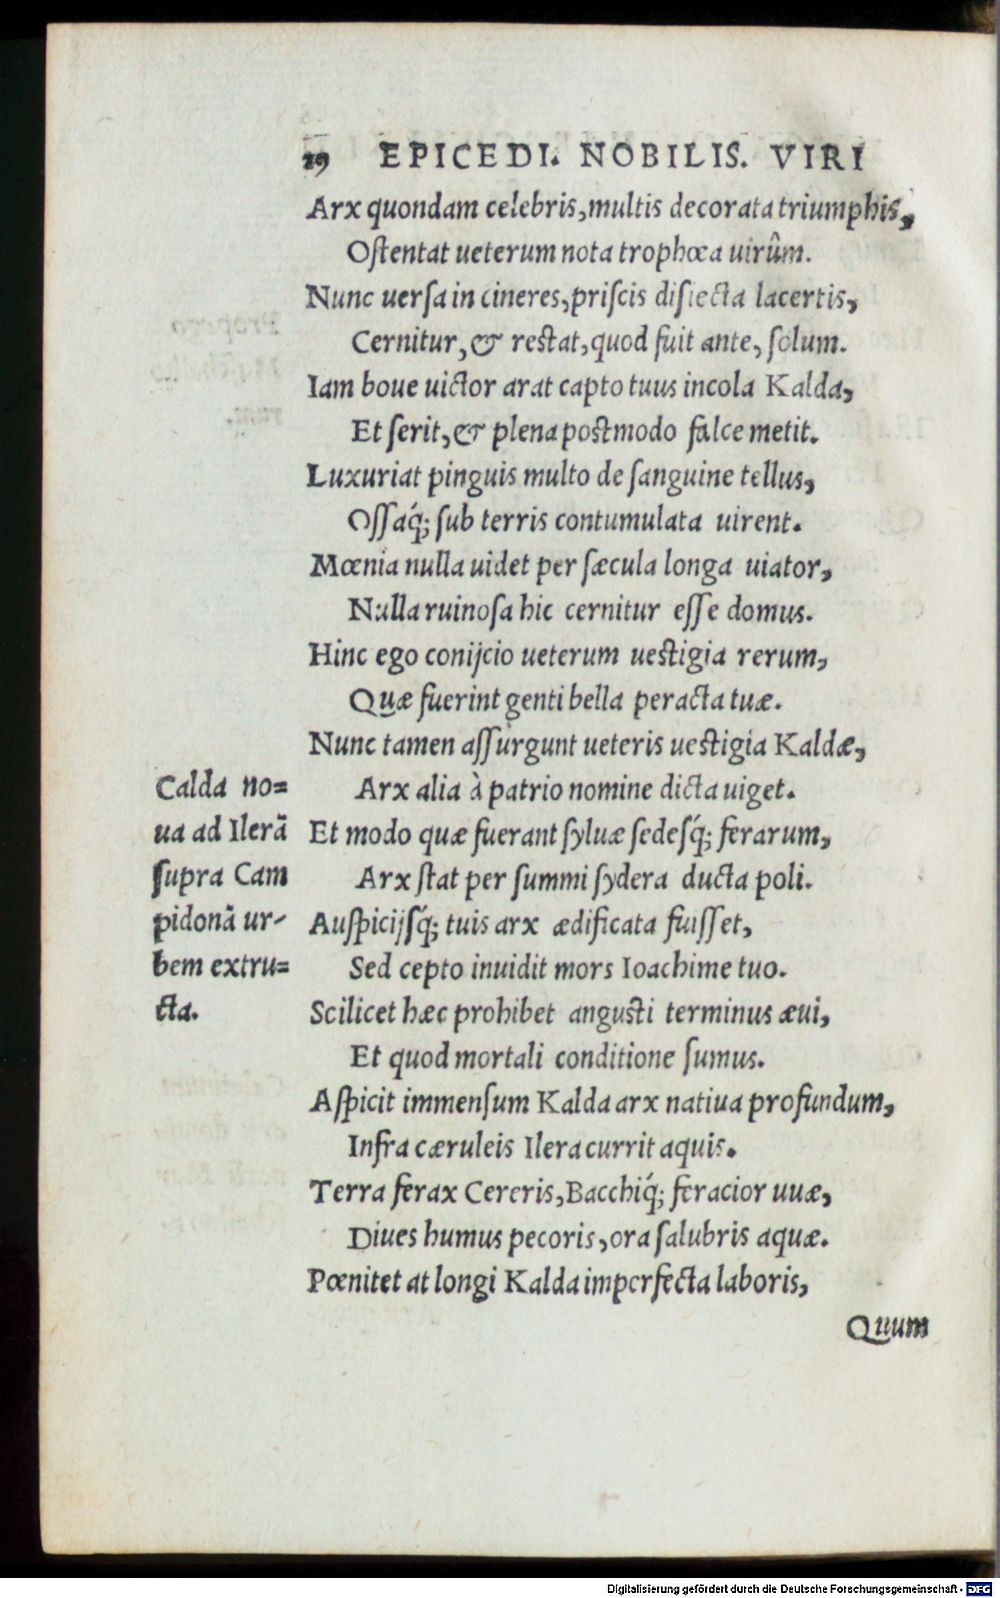 19 EPICEDI. NOBILIS. VIRI
Arx quondam celebris, multis decorata triumphis,
Oſtentat ueterum nota trophœa uirûm.
Nunc uerſa in cineres, priſcis diſiecta lacertis,
Cernitur, & reſtat, quod fuit ante, ſolum.
Iam boue uictor arat capto tuus incola Kalda,
Et ſerit, & plena poſtmodo falce metit.
Luxuriat pinguis multo de ſanguine tellus,
Oſſaq́; ſub terris contumulata uirent.
Mœnia nulla uidet per ſæcula longa uiator,
Nulla ruinoſa hic cernitur eſſe domus.
Hinc ego conijcio ueterum ueſtigia rerum,
Quæ fuerint genti bella peracta tuæ.
Nunc tamen aſſurgunt ueteris ueſtigia Kaldæ,
Arx alia à patrio nomine dicta uiget.
Et modo quæ fuerant ſyluæ ſedesq́; ferarum,
Arx ſtat per ſummi ſydera ducta poli.
Auſpicijsq́; tuis arx ædificata fuiſſet,
Sed cepto inuidit mors Ioachime tuo.
Scilicet hæc prohibet anguſti terminus æui,
Et quod mortali conditione ſumus.
Aſpicit immenſum Kalda arx natiua profundum,
Infra cæruleis Ilera currit aquis.
Terra ferax Cereris, Bacchiq́; feracior uuæ,
Diues humus pecoris, ora ſalubris aquæ.
Pœnitet at longi Kalda imperfecta laboris,
Quum
Calda no=
ua ad Ilerā
ſupra Cam
pidonā ur-
bem extru=
cta.
Digitalisierung gefördert durch die Deutsche Forschungsgemeinschaft - DFG